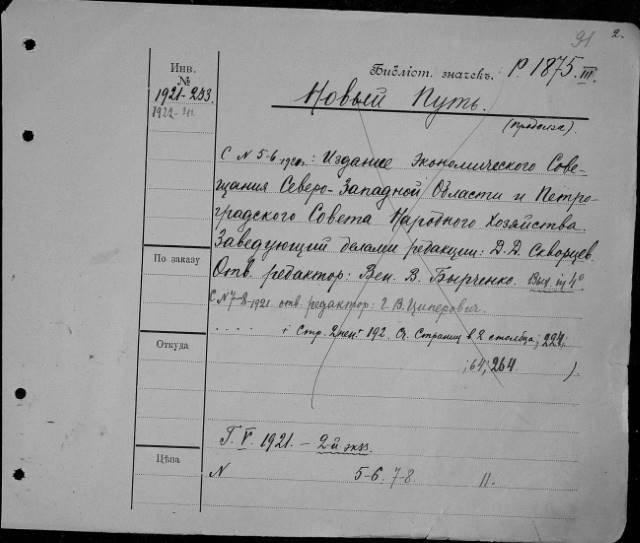 91 2.
Инв.
№
1921-233.
1922-
Библіот. значекъ. Р1875.III.
Новый Путь.
С N 5-6 1920г.: Издание Экономического Сове-
щания Северо-Западной Области и Петро-
градского Совета Народного Хозяйства.
Заведующий делами редакции: Д.Д. Скворцев.
По заказу
Отв. редактор: Вен. В. Бырченко. Вых. in 4°
С N 7-8 1921 отв. редактор: Г. В. Циперович.
.... + Стр. 2 нен. + 192. Сч. Страниц в 2 столбца; 224;
Откуда
; 64; 264 )
Г. V. 1921. – 2-й экз.
Цѣна
N 5-6. 7-8 11.